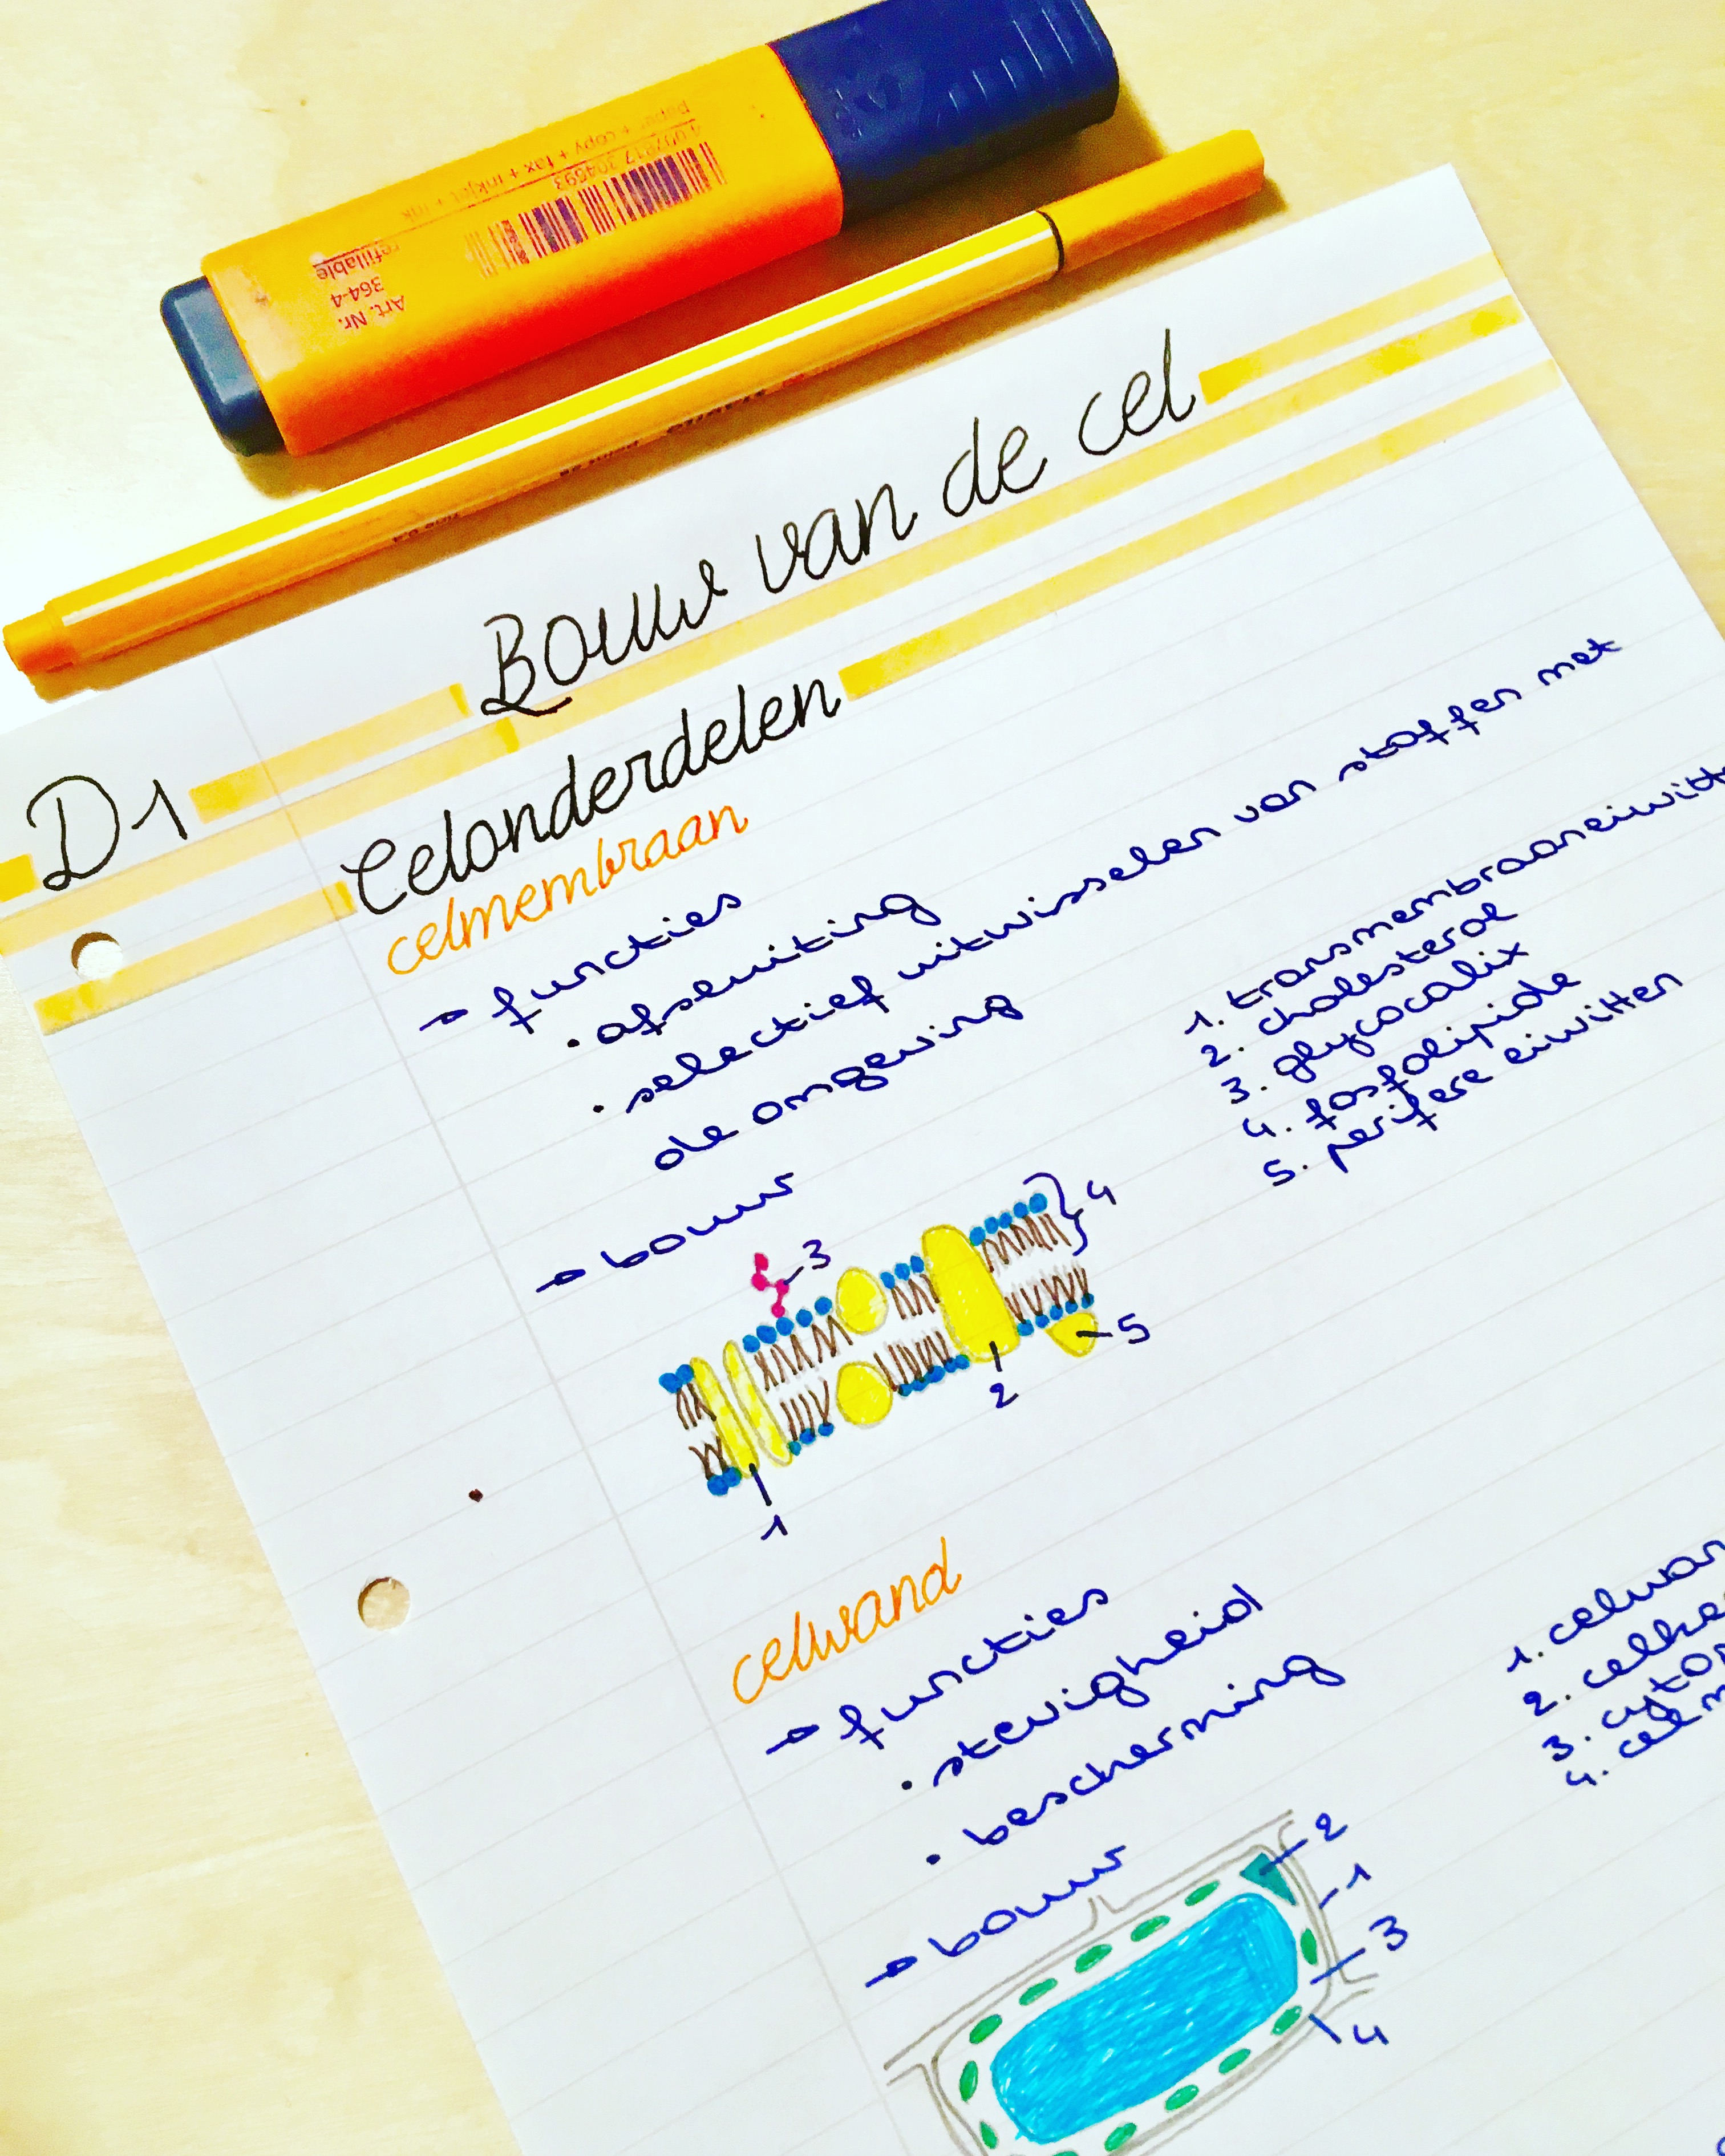 paper + copy + fax + inkjet + ink
4 007817 304693
refillable
Art. Nr.
364-4
D1
Bouw van de cel
Celonderdelen
celmembraan
→ functies
• afsluiting
• selectief uitwisselen van stoffen met
de omgeving
→ bouw
1. transmembraaneiwitt
2. cholesterol
3. glycocalix
4. fosfolipide
5. perifere eiwitten
3
4
5
2
1
celwand
→ functies
• stevigheid
• bescherming
→ bouw
1. celwan
2. celke
3. cytop
4. celm
2
1
3
4